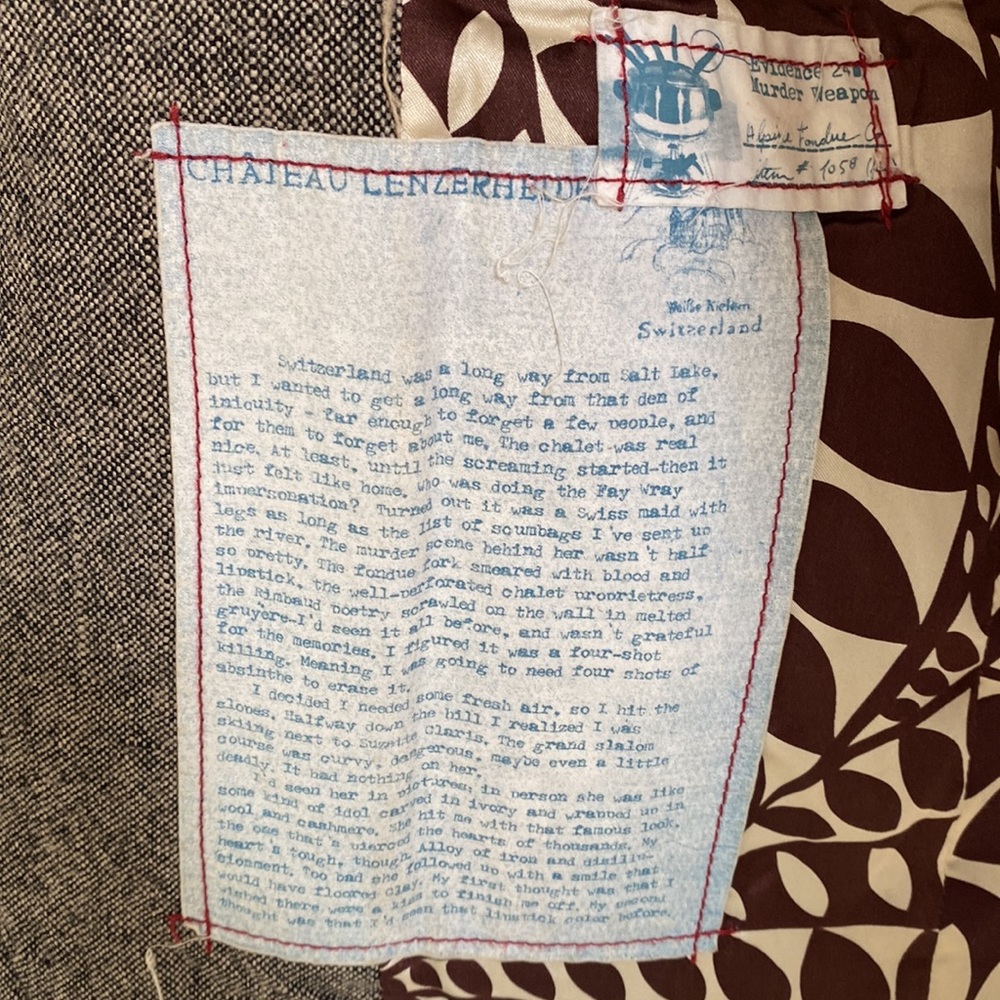 Evidence 24
Murder Weapon
Alpine Fondue Co
item # 1058
CHÂTEAU LENZERHEIDE
Weiße Kiefern
Switzerland
Switzerland was a long way from Salt Lake,
but I wanted to get a long way from that den of
iniquity - far enough to forget a few people, and
for them to forget about me. The chalet was real
nice. At least, until the screaming started-then it
just felt like home. Who was doing the Fay Wray
impersonation? Turned out it was a Swiss maid with
legs as long as the list of scumbags I've sent up
the river. The murder scene behind her wasn't half
so pretty. The fondue fork smeared with blood and
lipstick, the well-perforated chalet proprietress,
the Rimbaud poetry scrawled on the wall in melted
gruyère-I'd seen it all before, and wasn't grateful
for the memories. I figured it was a four-shot
killing. Meaning I was going to need four shots of
absinthe to erase it.
I decided I needed some fresh air, so I hit the
slopes. Halfway down the hill I realized I was
skiing next to Suzette Claris. The grand slalom
course was curvy, dangerous, maybe even a little
deadly. It had nothing on her.
I'd seen her in pictures; in person she was like
some kind of idol carved in ivory and wrapped up in
wool and cashmere. She hit me with that famous look,
the one that's pierced the hearts of thousands. My
heart's tough, though. Alloy of iron and disillu-
sionment. Too bad she followed up with a smile that
would have floored Clay. My first thought was that I
wished there were a kiss to finish me off. My second
thought was that I'd seen that lipstick color before.